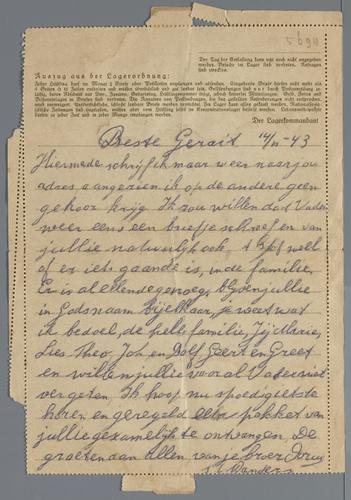 5694
Der Tag der Entlassung kann jetzt noch nicht angegeben
werden. Besuche im Lager sind verboten. Anfragen
sind zwecklos.
Auszug aus der Lagerordnung:
Jeder Häftling darf im Monat 2 Briefe oder Postkarten empfangen und absenden. Eingehende Briefe dürfen nicht mehr als
4 Seiten à 15 Zeilen enthalten und müssen übersichtlich und gut lesbar sein. Geldsendungen sind nur durch Postanweisung zu-
lässig, deren Abschnitt nur Vor-, Zuname, Geburtstag, Häftlingsnummer trägt, jedoch keinerlei Mitteilungen. Geld, Fotos und
Bildereinlagen in Briefen sind verboten. Die Annahme von Postsendungen, die den gestellten Anforderungen nicht entsprechen,
wird verweigert. Unübersichtliche, schlecht lesbare Briefe werden vernichtet. Im Lager kann alles gekauft werden. Nationalsozia-
listische Zeitungen sind zugelassen,
Der Lagerkommandant
Beste Gerait 14/11-43
Hiermede schrijf ik maar weer naar jou
adres aangezien ik op de andere geen
gehoor krijg. Ik zou willen dat Vader
weer eens een briefje schreef en van
jullie natuurlijk ook of
of er iets gaande is, in de familie.
Er is al ellende genoeg, blijven jullie
in Godsnaam bij elkaar, je weet wat
ik bedoel, de hele familie, Jij, Marie,
Lies, Theo, Joh en Dolf, Geert en Greet
en willen jullie vooral Vader niet
vergeten. Ik hoop nu spoedig iets te
horen en geregeld een pakket van
jullie gezamelijk te ontvangen. De
groeten aan allen van je broer